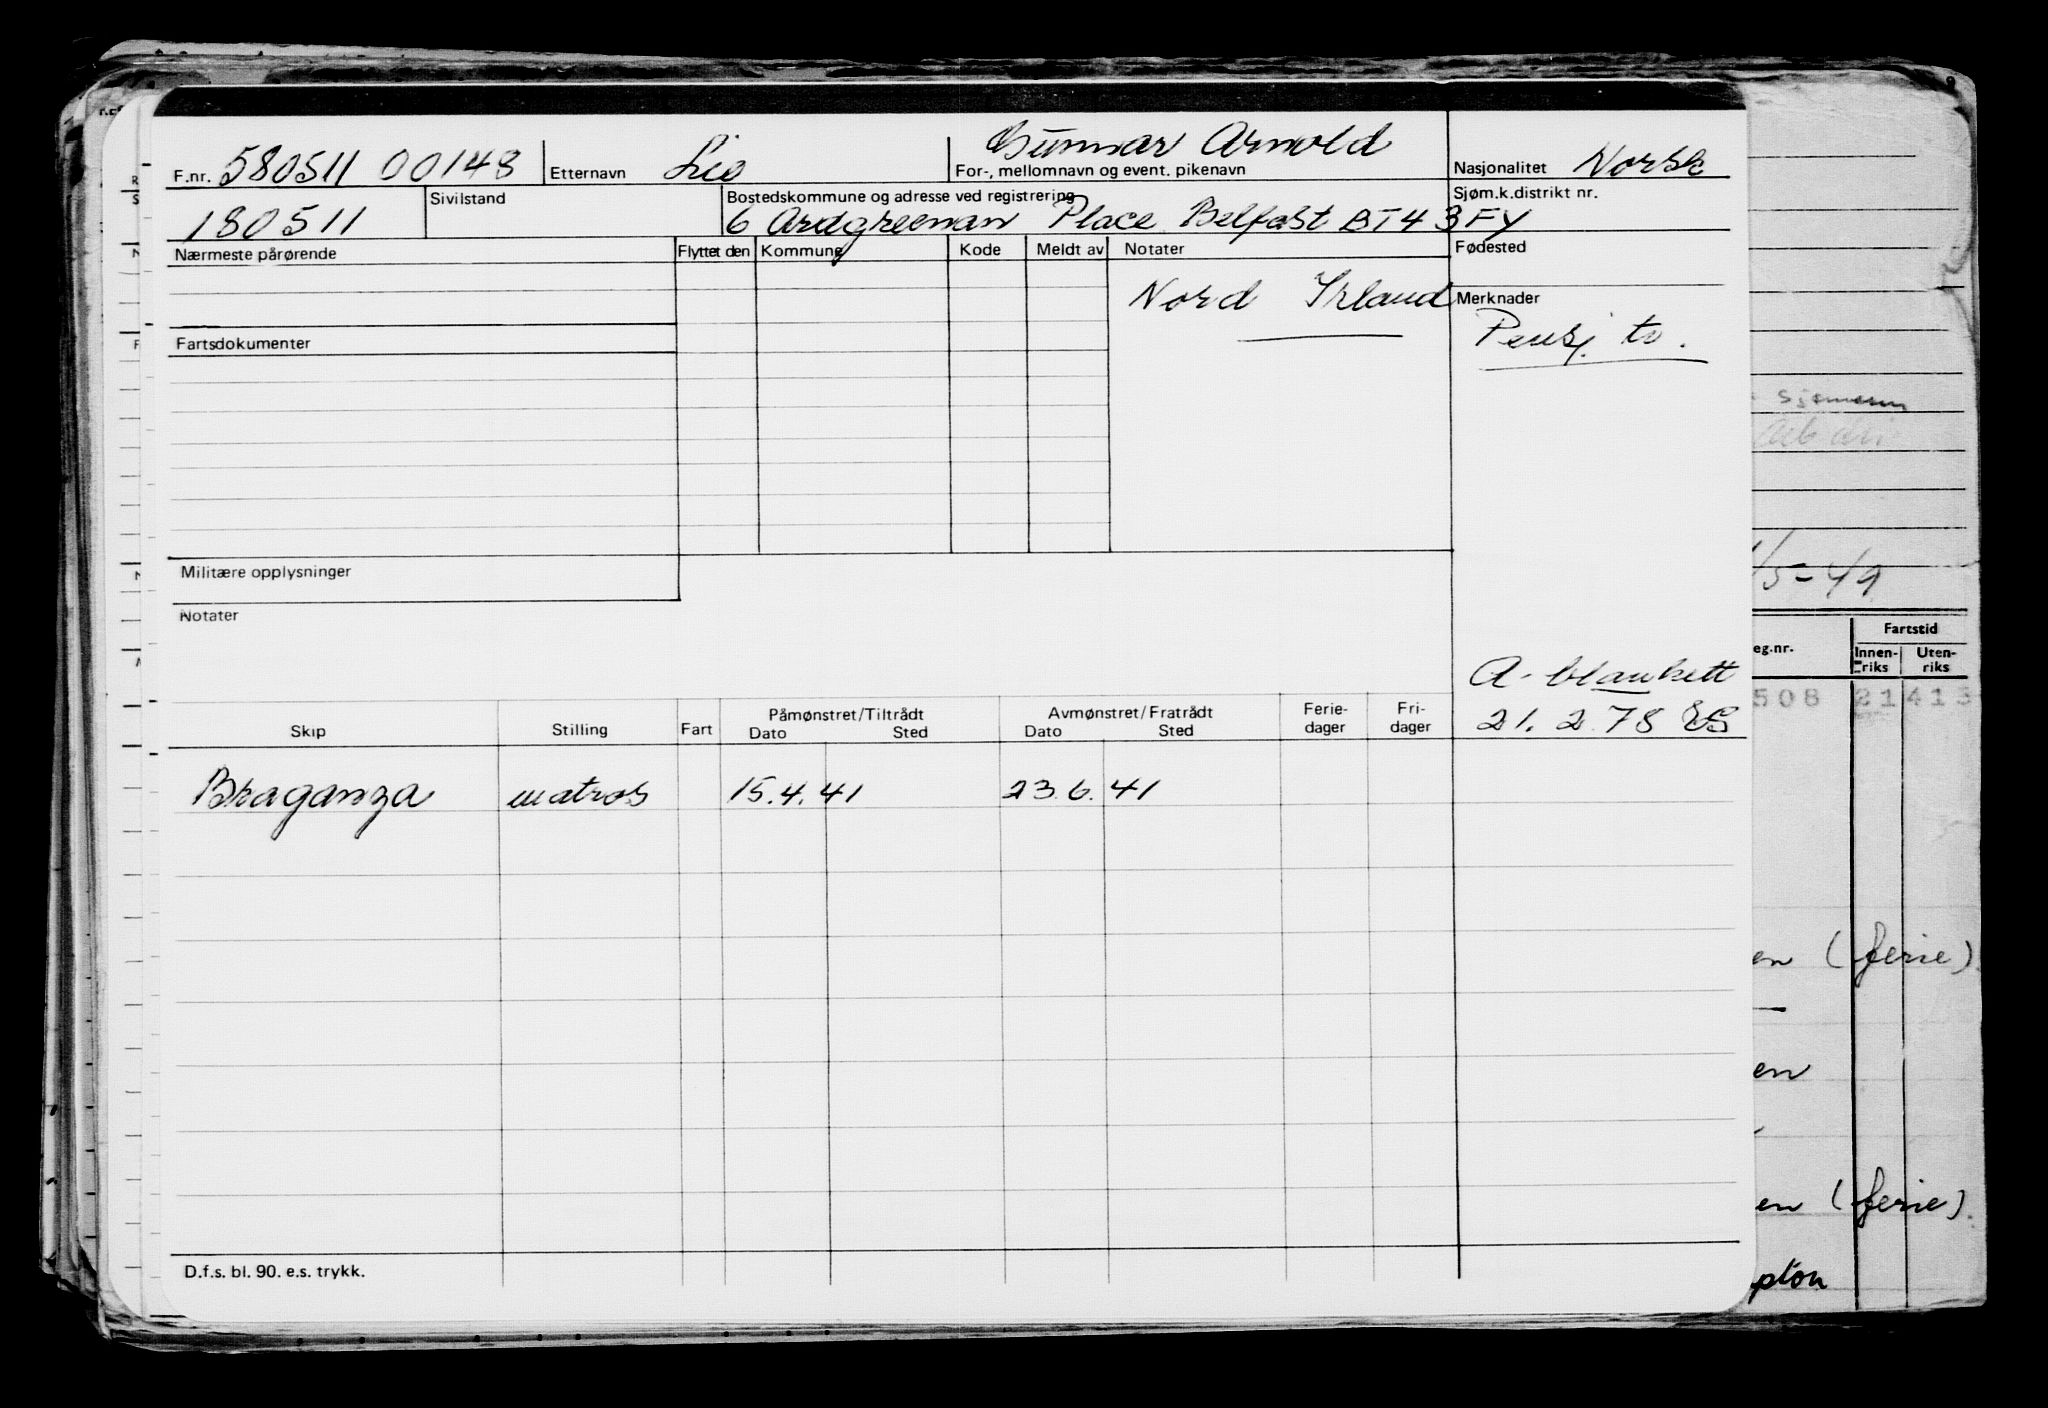 F.nr. 580511 00148 Etternavn Lio Gunnar Arnold For-, mellomnavn og event. pikenavn Nasjonalitet Norsk
180511 Sivilstand Bostedskommune og adresse ved registrering 6 Ardgreenan Place Belfast BT4 3FY Sjøm.k.distrikt nr.
Nærmeste pårørende Flyttet den Kommune Kode Meldt av Notater Fødested
Nord Irland Merknader
Fartsdokumenter Pensj. tr.
sjømenn
/5-49
Militære opplysninger
Notater
Fartstid
eg.nr. Innen-riks Uten-riks
A-blankett
508 21 413
Skip Stilling Fart Påmønstret/Tiltrådt Dato Sted Avmønstret/Fratrådt Dato Sted Ferie-dager Fri-dager 21.2.78 ES
Braganza matros 15.4.41 23.6.41
en (ferie)
en
en (ferie)
D.f.s. bl. 90. e.s. trykk.
pton